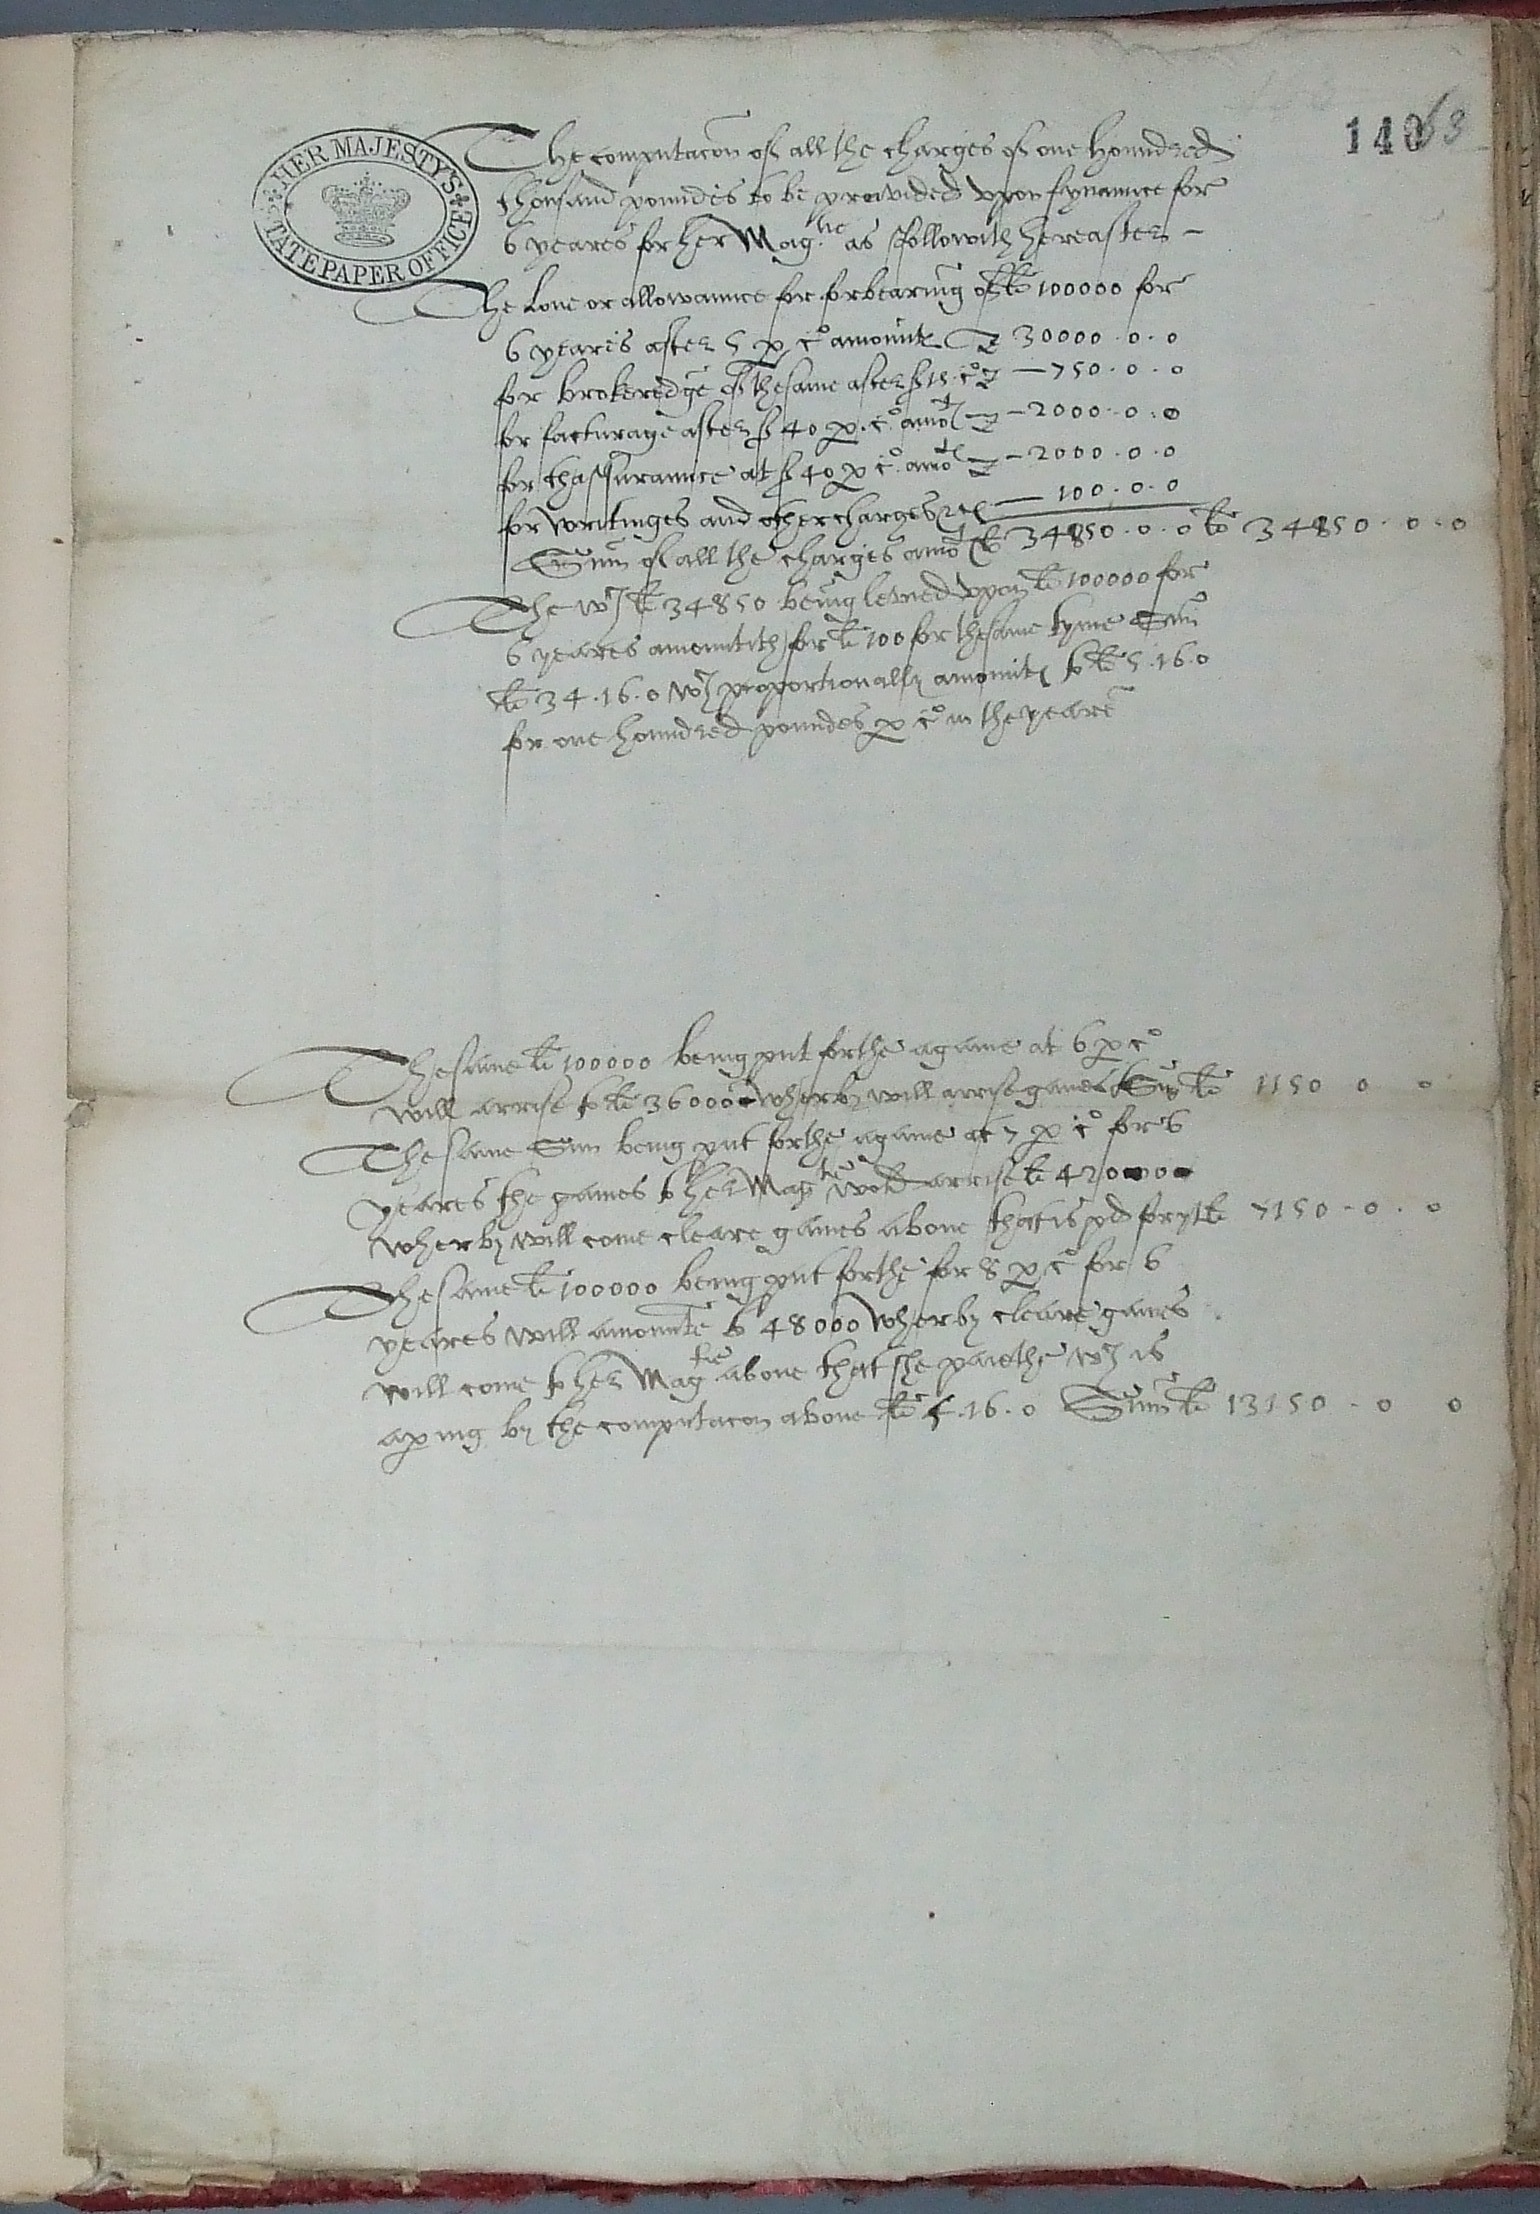 HER MAJESTY'S
STATE PAPER OFFICE
140
63
The computacōn of all the charges of one Houndred
thousand poundes to be provided vpon fynaunce for
6 yeares for her Mag.tie as ffollowith hereafter –
The Lone or allowaunce for forbearing of ł 100000 for
6 yeares after 5 p c° amount ł 30000 . 0 . 0
for brokeredge of thesame after ß 15 . c° ł — 750 . 0 . 0
for facturage after ß 40 p . c° amot ł — 2000 . 0 . 0
for thassuraunce at ß 40 p c° amot ł — 2000 . 0 . 0
for writinges and other charges — 100 . 0 . 0
Sum of all the charges amot ł 34850 . 0 . 0 ł 34850 . 0 . 0
The wch ł 34850 being levied vpon ł 100000 for
6 yeares amountith for ł 100 for thesame tyme Sum
ł 34 . 16 . 0 wch proportionally amounts to ł 5 . 16 . 0
for one houndred poundes p c° in the yeare
Thesame ł 100000 being put forthe agame at 6 p c°
will arrise to ł 36000 wherby will arrise games Sum ł 1150 0 0
Thesame Sum being put forthe agame at 7 p c° for 6
yeares the games to her Magtie wold arrise ł 42000
wherby will come cleare games above that is pd for yt ł 7150 . 0 . 0
Thesame ł 100000 being put forthe for 8 p c° for 6
yeares will amounte to 48000 wherby cleare games
will come to her Magtie above that she paiethe wch is
aping by the computacon above ł 5 . 16 . 0 Sum ł 13150 . 0 0